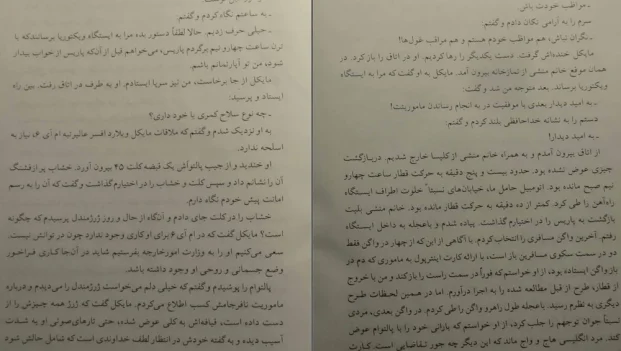 ـ به ساعتم نگاه کردم و گفتم:
ـ خیلی حرف زدیم. حالا لطفاً دستور بده مرا به ایستگاه ویکتوریا برسانند که با
ترن ساعت چهار و نیم برگردم پاریس، می‌خواهم قبل از آن‌که پاریس از خواب بیدار
شود، من تو آپارتمانم باشم.
مایکل از جا برخاست، من نیز سرپا ایستادم. او به طرف در اتاق رفت. بین راه
ایستاد و پرسید:
ـ چه نوع سلاح کمری با خود داری؟
به او نزدیک شدم و گفتم که ملاقات مایکل ویلارد افسر عالیرتبه ام آی ۶، نیاز به
اسلحه ندارد.
او خندید و از جیب پالتواش یک قبضه کلت ۴۵ بیرون آورد. خشاب پر از فشنگ
آن را نشانم داد و سپس کلت و خشاب را در اختیارم گذاشت و گفت که آن را به رسم
امانت پیش خودم نگاه دارم.
خشاب را در کلت جای دادم و آنگاه از حال و روز ژرژمندل پرسیدم که چگونه
است؟ مایکل گفت که در ام آی ۶ برای او کاری وجود ندارد چون در توانش نیست.
سعی می‌کنیم او را به وزارت امور خارجه بفرستیم شاید در آن‌جا کاری فراخور
وضع جسمانی و روحی او وجود داشته باشد.
پالتوام را پوشیدم و گفتم که خیلی دلم می‌خواست ژرژمندل را می‌دیدم و درباره
ماموریت نافرجامش کسب اطلاع می‌کردم. مایکل گفت که ژرژ همه چیزش را از
دست داده است، قیافه‌اش به کلی عوض شده، حتی تارهای صوتی او به شدت
آسیب دیده و به گفته خودش در انتظار لطف خداوندی است که شامل حالش شود
ـ مواظب خودت باش.
سرم را به آرامی تکان دادم و گفتم:
ـ نگران نباش، هم مواظب خودم هستم و هم مراقب غول‌ها!
مایکل خنده‌اش گرفت. دست یکدیگر را رها کردیم. او در اتاق را باز کرد. در
همان موقع خانم منشی از نمازخانه بیرون آمد. مایکل به او گفت که مرا به ایستگاه
ویکتوریا برساند. بعد متوجه من شد و گفت:
ـ به امید دیدار بعدی با موفقیت در به انجام رساندن ماموریتت!
دستم را به نشانه خداحافظی بلند کردم و گفتم:
ـ به امید دیدار!
از اتاق بیرون آمدم و به همراه خانم منشی از کلیسا خارج شدیم. در بازگشت
چیزی عوض نشده بود. حدود بیست و پنج دقیقه به حرکت قطار ساعت چهار و
نیم صبح مانده بود. اتومبیل حامل ما، خیابان‌های نسبتاً خلوت اطراف ایستگاه
راه‌آهن را طی کرد. کمتر از ده دقیقه به حرکت قطار مانده بود. خانم منشی بلیت
بازگشت به پاریس را در اختیارم گذاشت. پیاده شدم و با عجله به داخل ایستگاه
رفتم. آخرین واگن مسافری را انتخاب کردم. با آگاهی از این که از چهار در واگن فقط
دو در سمت سکوی مسافرین باز است، با ارائه کارت اینترپول به ماموری که دم در
باز واگن ایستاده بود، از او خواستم که فوراً در سمت راست را باز کند و من با خروج
از قطار، طرح از قبل مطالعه شده را به اجرا درآورم. اما در همین لحظات طرح
دیگری به نظرم رسید. با عجله طول راهرو واگن را طی کردم. در واگن بعدی، مردی
نسبتاً جوان توجهم را جلب کرد، از او خواستم که بارانی خود را با پالتوام عوض
کند. مرد انگلیسی هاج و واج ماند که این دیگر چه جور تقاضایی است. کارت